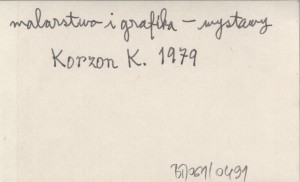 malarstwo i grafika - wystawy
Korzon K. 1979
B/961/0491